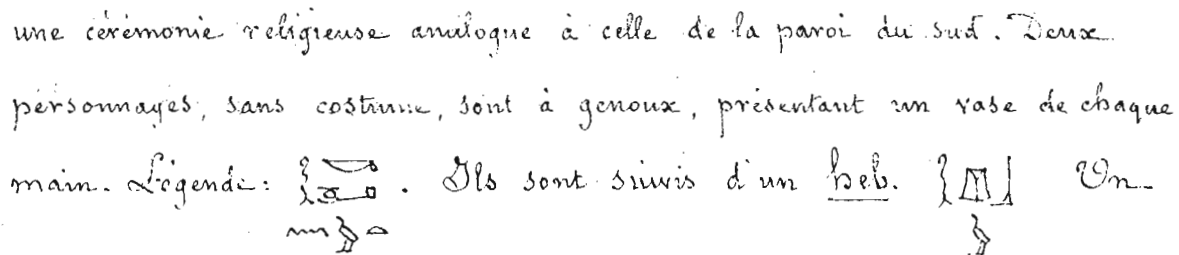 une cérémonie religieuse analogue à celle de la paroi du sud. Deux
personnages, sans costume, sont à genoux, présentant un vase de chaque
main. Légende: . Ils sont suivis d'un heb. Un